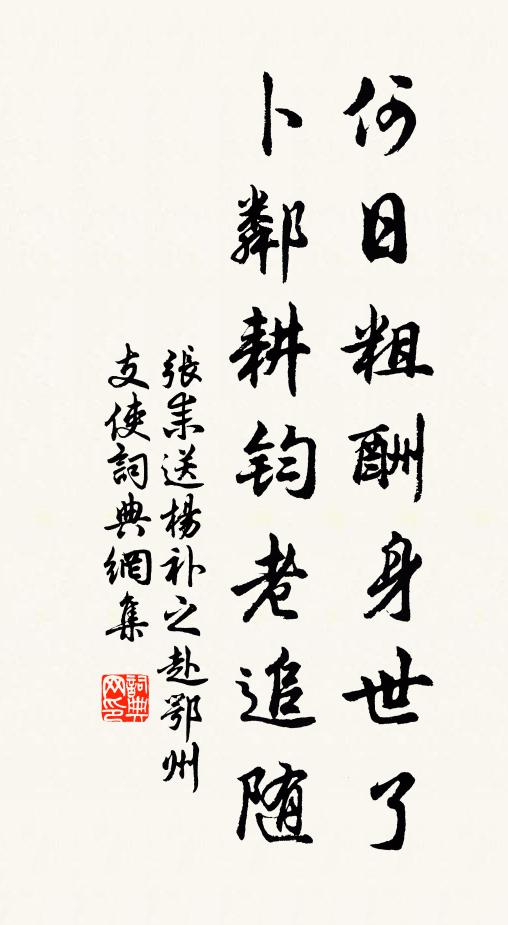 何日粗酬身世了
卜鄰耕钧老追随
張耒送楊补之赴鄂州
支使詞典網集
詞典
网印